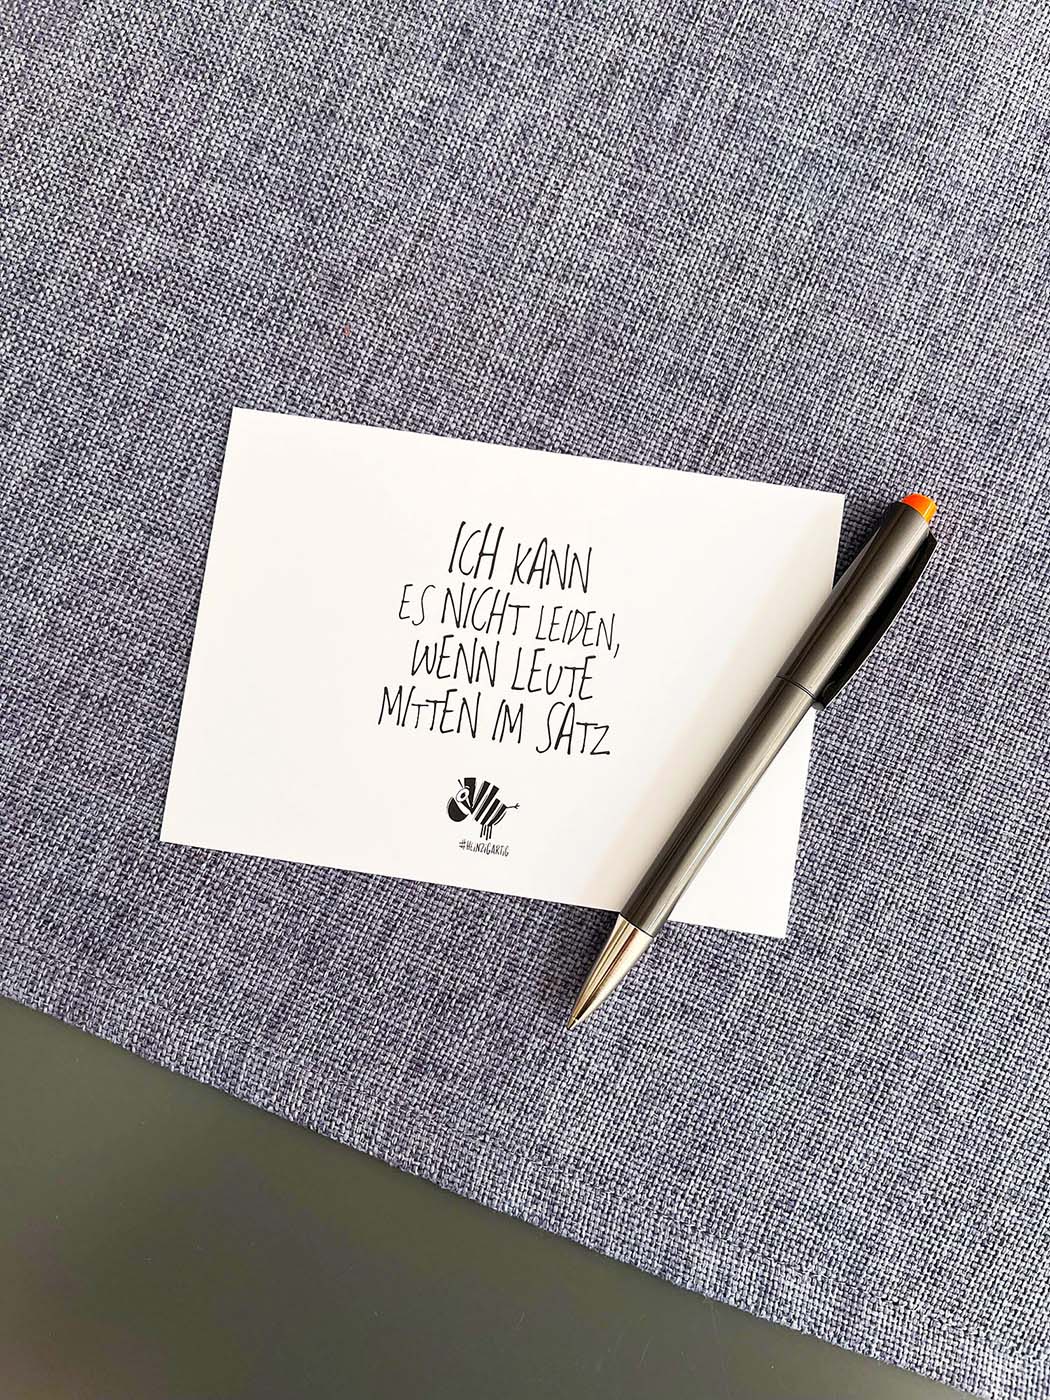 ICH KANN
ES NICHT LEIDEN,
WENN LEUTE
MITTEN IM SATZ
#HEINZIGARTIG